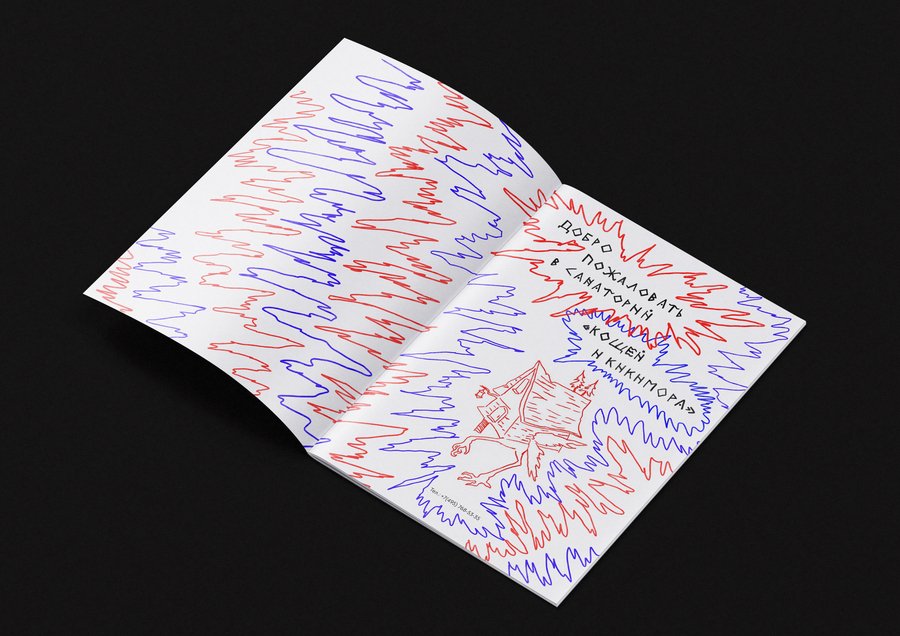 ДОБРО
ПОЖАЛОВАТЬ
В САНАТОРИЙ
«КОЩЕЙ
И КИКИМОРА»
Тел.: +7(495) 768-53-53